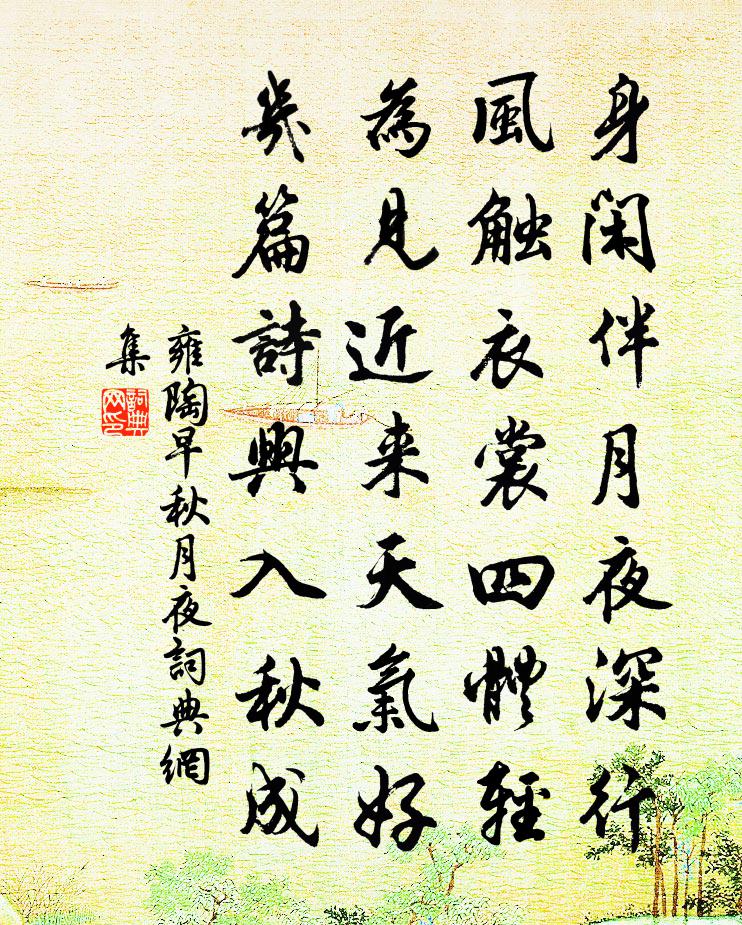 身閑伴月夜深行
風触衣裳四體輕
為見近来天氣好
幾篇詩興入秋成
雍陶早秋月夜詞典網
集
詞典
网印